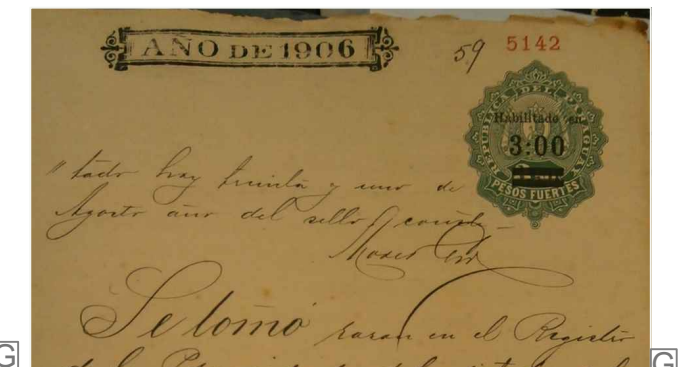 AÑO DE 1906
59 5142
REPUBLICA DEL PARAGUAY
Habilitado en
3:00
PESOS FUERTES
"tado hoy treinta y uno de
Agosto año del sello, conste—
Se tomó razon en el Registro
de la
G G